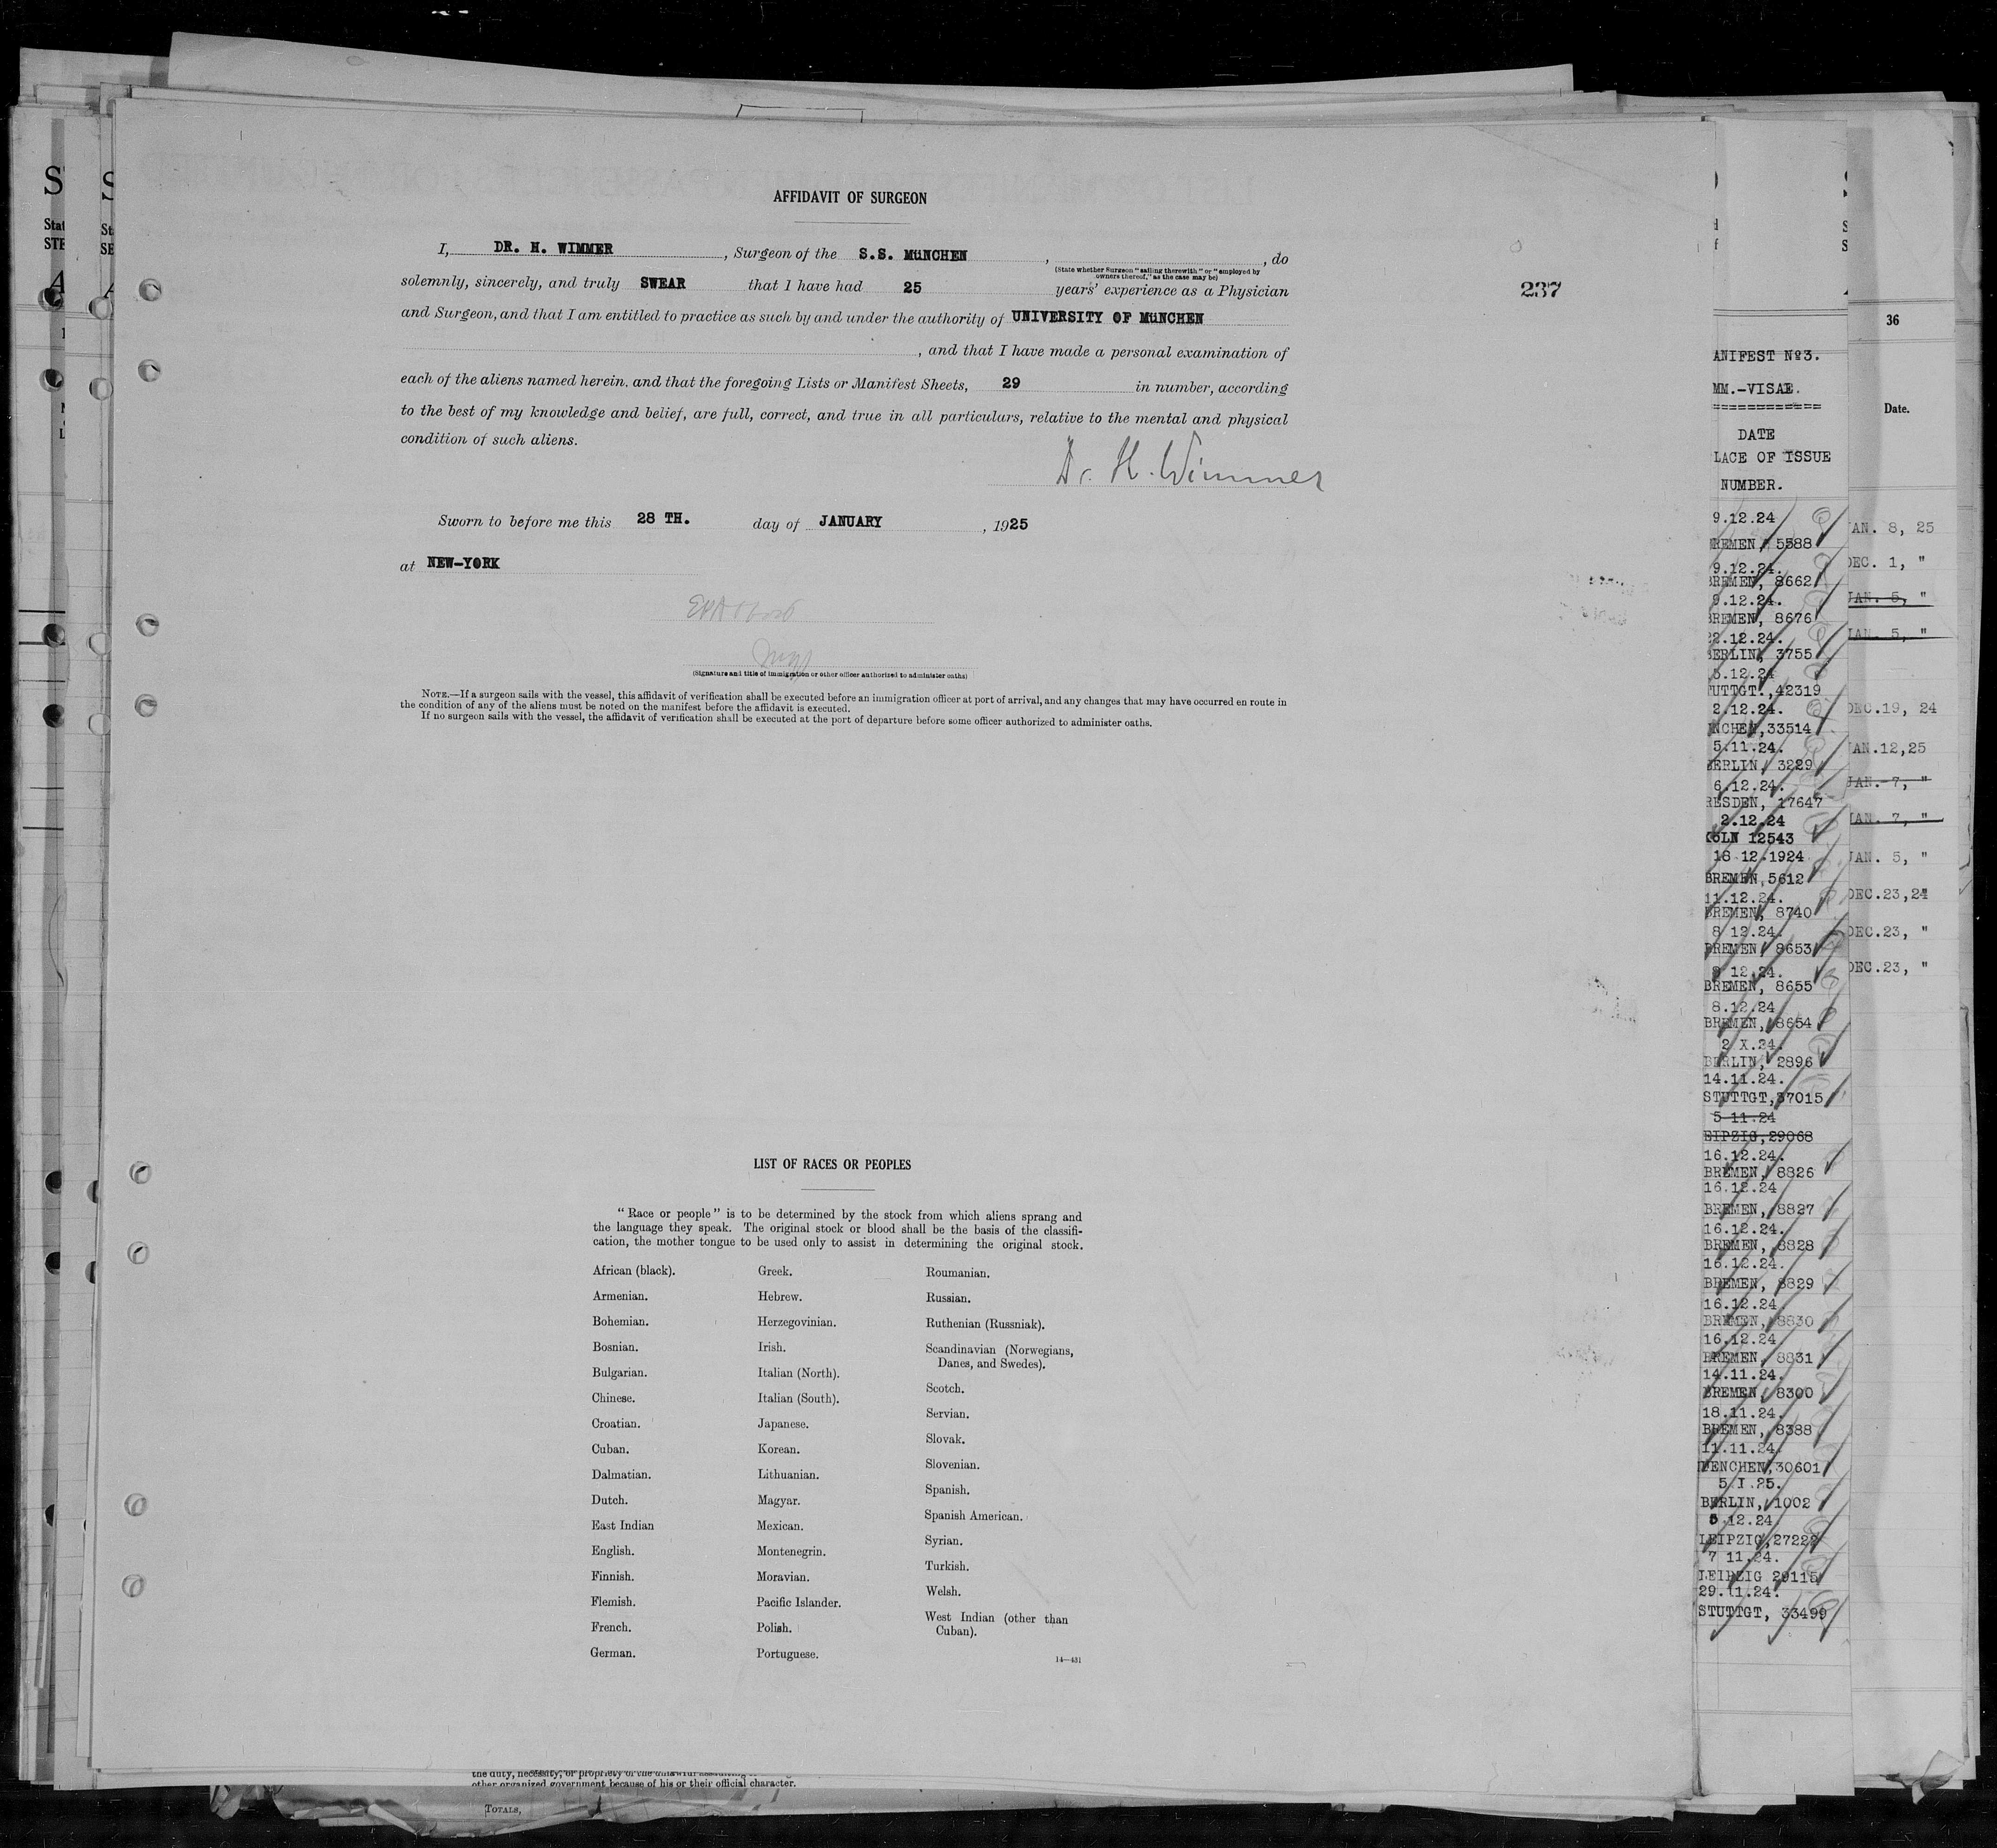 AFFIDAVIT OF SURGEON
I, DR. H. WIMMER, Surgeon of the S.S. MüNCHEN, , do
(State whether Surgeon "sailing therewith" or "employed by
owners thereof," as the case may be)
solemnly, sincerely, and truly SWEAR that I have had 25 years' experience as a Physician
237
and Surgeon, and that I am entitled to practice as such by and under the authority of UNIVERSITY OF MüNCHEN
, and that I have made a personal examination of
each of the aliens named herein. and that the foregoing Lists or Manifest Sheets, 29 in number, according
to the best of my knowledge and belief, are full, correct, and true in all particulars, relative to the mental and physical
condition of such aliens.
Dr. H. Wimmer
Sworn to before me this 28 TH. day of JANUARY, 1925
at NEW-YORK
(Signature and title of immigration or other officer authorized to administer oaths)
NOTE.—If a surgeon sails with the vessel, this affidavit of verification shall be executed before an immigration officer at port of arrival, and any changes that may have occurred en route in
the condition of any of the aliens must be noted on the manifest before the affidavit is executed.
If no surgeon sails with the vessel, the affidavit of verification shall be executed at the port of departure before some officer authorized to administer oaths.
LIST OF RACES OR PEOPLES
"Race or people" is to be determined by the stock from which aliens sprang and
the language they speak. The original stock or blood shall be the basis of the classifi-
cation, the mother tongue to be used only to assist in determining the original stock.
African (black).
Armenian.
Bohemian.
Bosnian.
Bulgarian.
Chinese.
Croatian.
Cuban.
Dalmatian.
Dutch.
East Indian
English.
Finnish.
Flemish.
French.
German.
Greek.
Hebrew.
Herzegovinian.
Irish.
Italian (North).
Italian (South).
Japanese.
Korean.
Lithuanian.
Magyar.
Mexican.
Montenegrin.
Moravian.
Pacific Islander.
Polish.
Portuguese.
Roumanian.
Russian.
Ruthenian (Russniak).
Scandinavian (Norwegians,
Danes, and Swedes).
Scotch.
Servian.
Slovak.
Slovenian.
Spanish.
Spanish American.
Syrian.
Turkish.
Welsh.
West Indian (other than
Cuban).
14—431
ANIFEST Nº3.
MM.-VISAE.
============
DATE
LACE OF ISSUE
NUMBER.
9.12.24
REMEN, 5588
9.12.24.
BREMEN, 8662
9.12.24.
BREMEN, 8676
22.12.24.
BERLIN, 3755
5.12.24
TUTTGT.,42319
2.12.24.
NCHEN,33514
5.11.24.
BERLIN, 3229
6.12.24.
RESDEN, 17647
2.12.24
KöLN 12543
18 12.1924
BREMEN,5612
11.12.24.
BREMEN, 8740
8 12.24.
BREMEN 8653
8 12.24.
BREMEN, 8655
8.12.24
BREMEN, 8654
2 X.24.
BERLIN, 2896
14.11.24.
STUTTGT,37015
5 11.24
EIPZIG,29068
16.12.24.
BREMEN, 8826
16.12.24
BREMEN, 8827
16.12.24.
BREMEN, 8828
16.12.24.
BREMEN, 8829
16.12.24.
BREMEN, 8830
16.12.24
BREMEN, 8831
14.11.24.
BREMEN, 8300
18.11.24.
BREMEN, 8388
11.11.24.
MUENCHEN,30601
5.I.25.
BERLIN, 1002
5.12.24.
LEIPZIG,27222
7 11.24.
LEIPZIG 29115
29.11.24.
STUTTGT, 33499
36
Date.
JAN. 8, 25
DEC. 1, "
JAN. 5, "
JAN. 5, "
DEC.19, 24
JAN.12,25
JAN. 7, "
JAN. 7, "
JAN. 5, "
DEC.23,24
DEC.23, "
DEC.23, "
other organized government because of his or their official character.
TOTALS,